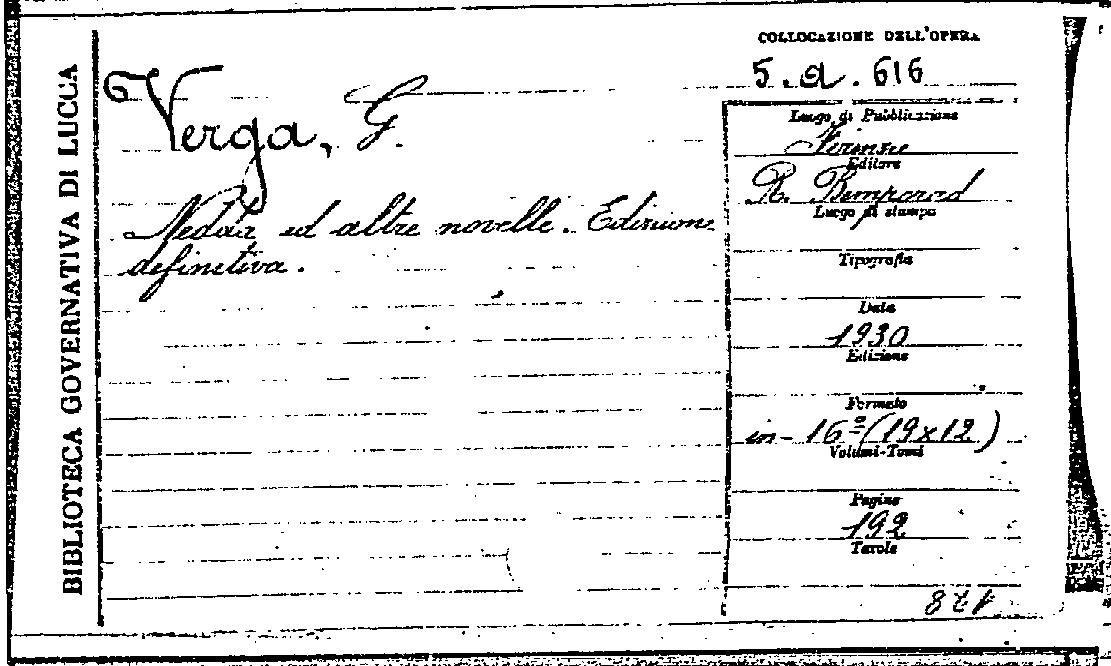 BIBLIOTECA GOVERNATIVA DI LUCCA
COLLOCAZIONE DELL'OPERA
5. a. 616
Verga, G.
Nedda ed altre novelle. Edizione
definitiva.
Luogo di Pubblicazione
Firenze
Editore
R. Bemporad
Luogo di stampa
Tipografia
Data
1930
Edizione
Formato
in-16º (19x12)
Volumi-Tomi
Pagine
192
Tavole